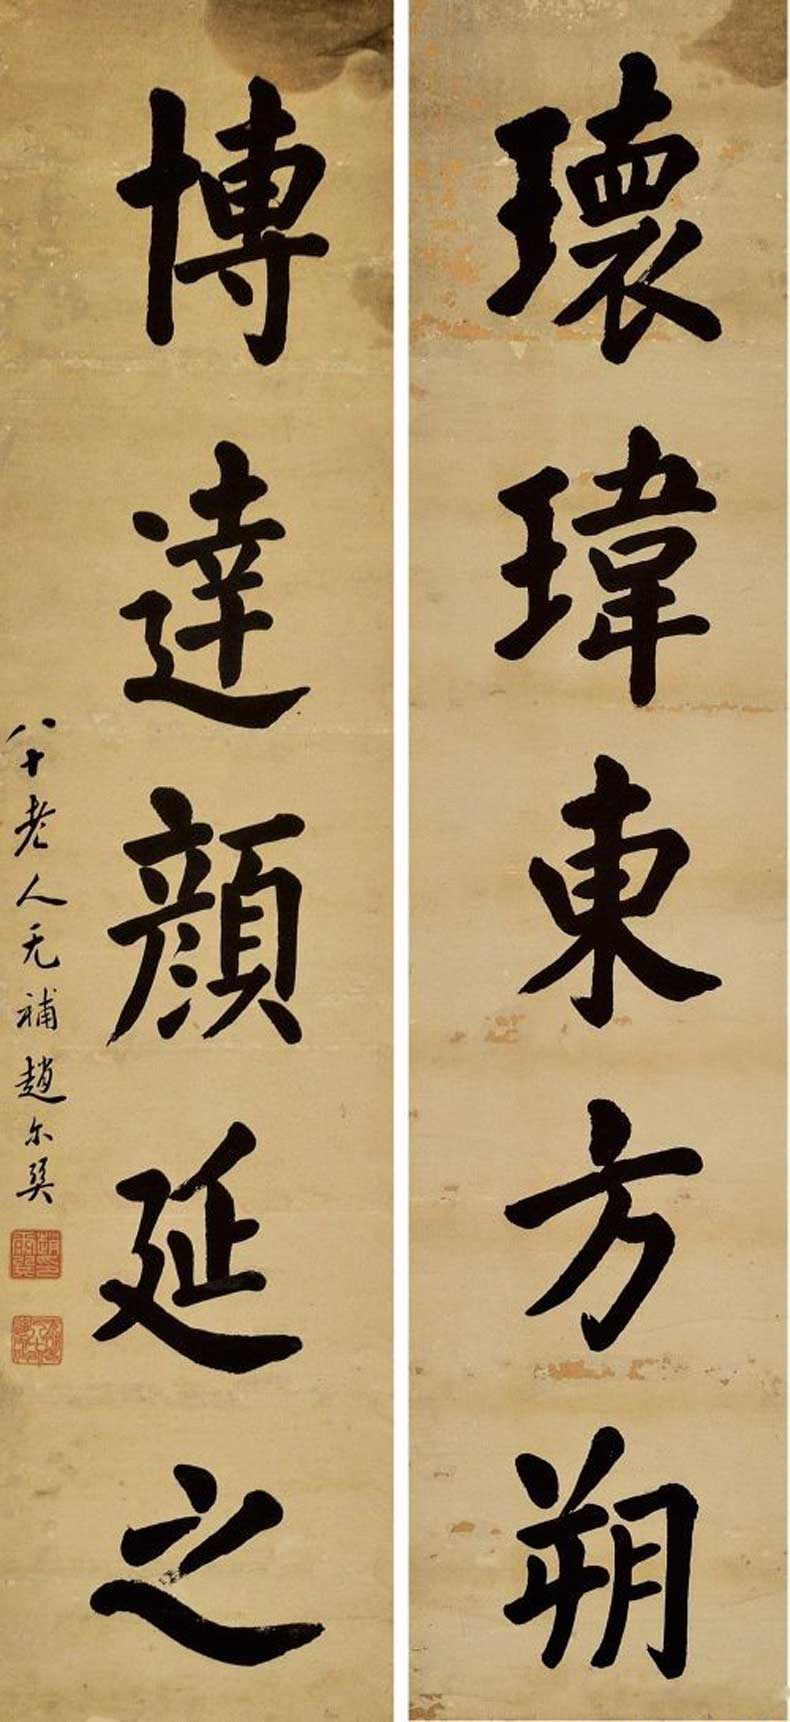 瓌瑋東方朔
博達顏延之
八十老人无補趙尔巽